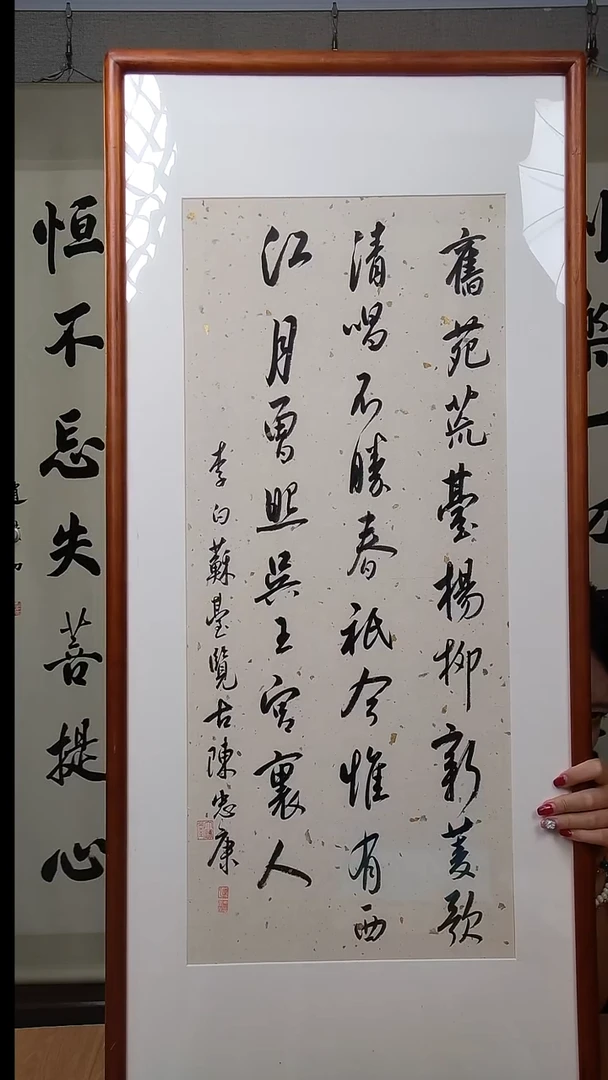 舊苑荒臺楊柳新菱歌
清唱不勝春祗今惟有西
江月曾照吳王宮裏人
李白蘇臺覽古陳忠康
恒不忘失菩提心